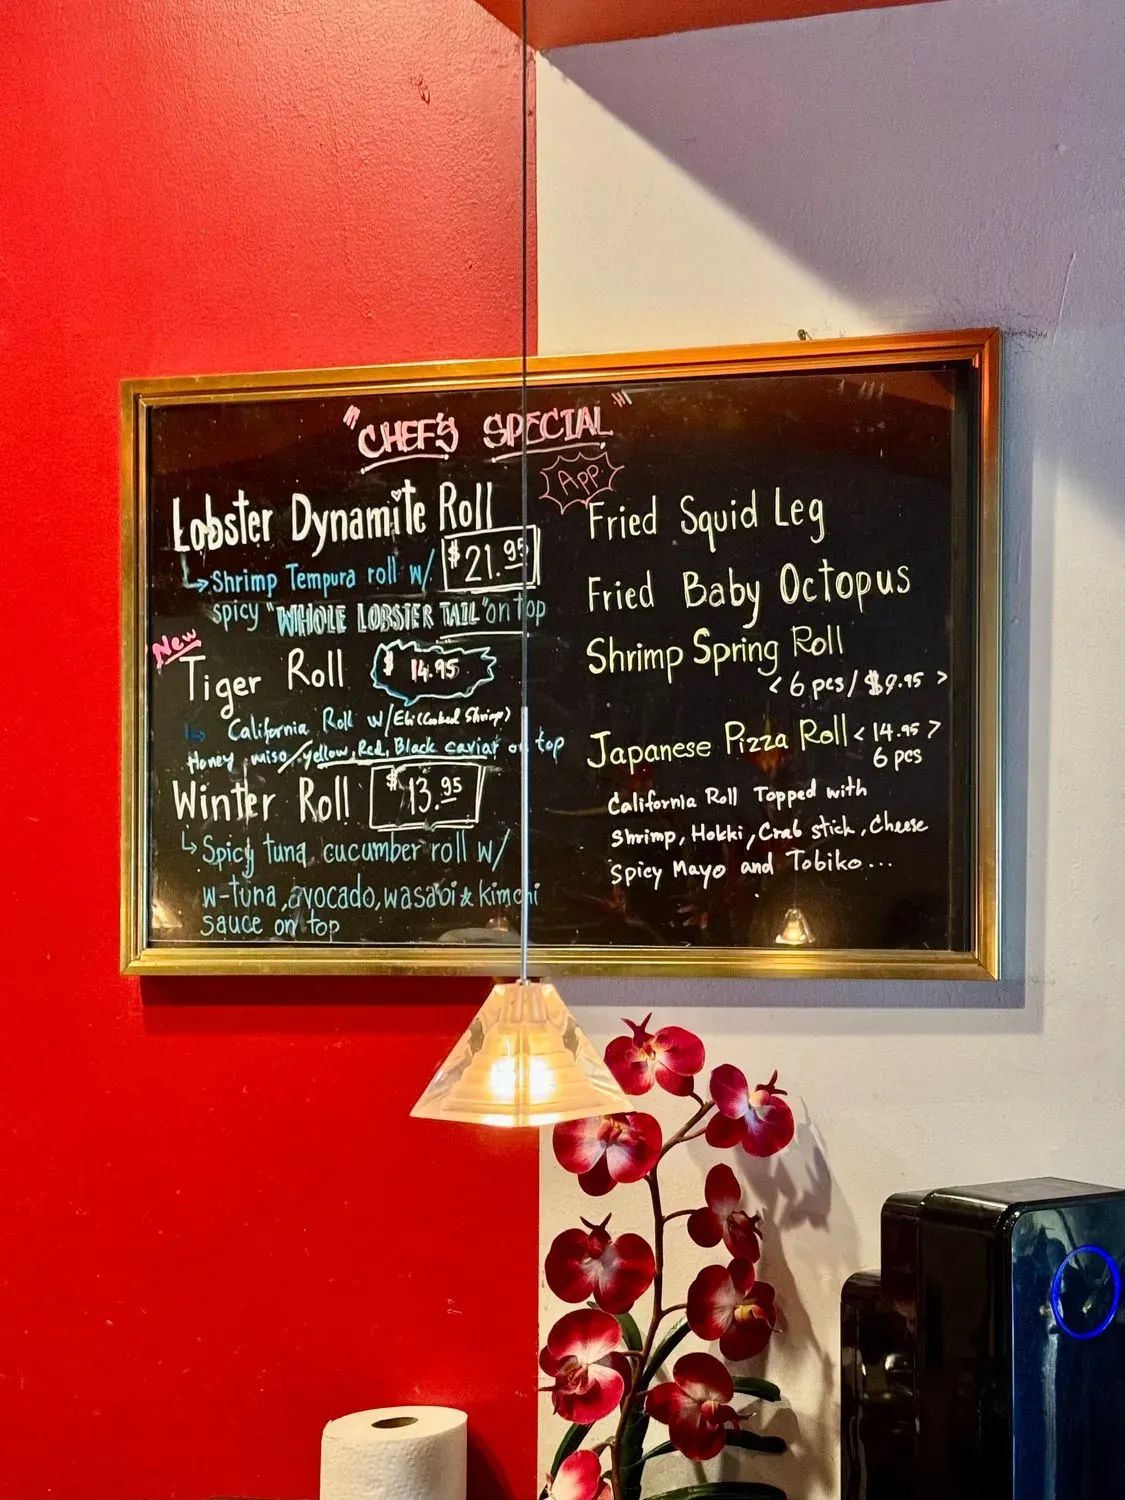 "CHEF'S SPECIAL"
Lobster Dynamite Roll
$21.95
Shrimp Tempura roll w/
spicy "WHOLE LOBSTER TAIL" on top
New
Tiger Roll $14.95
California Roll w/Ebi(Cooked Shrimp)
Honey miso, Yellow, Red, Black caviar on top
Winter Roll $13.95
Spicy tuna cucumber roll w/
w-tuna, avocado, wasabi & kimchi
sauce on top
App.
Fried Squid Leg
Fried Baby Octopus
Shrimp Spring Roll
<6 pcs/$9.95>
Japanese Pizza Roll <14.95>
6 pcs
California Roll Topped with
Shrimp, Hokki, Crab stick, Cheese
Spicy Mayo and Tobiko...